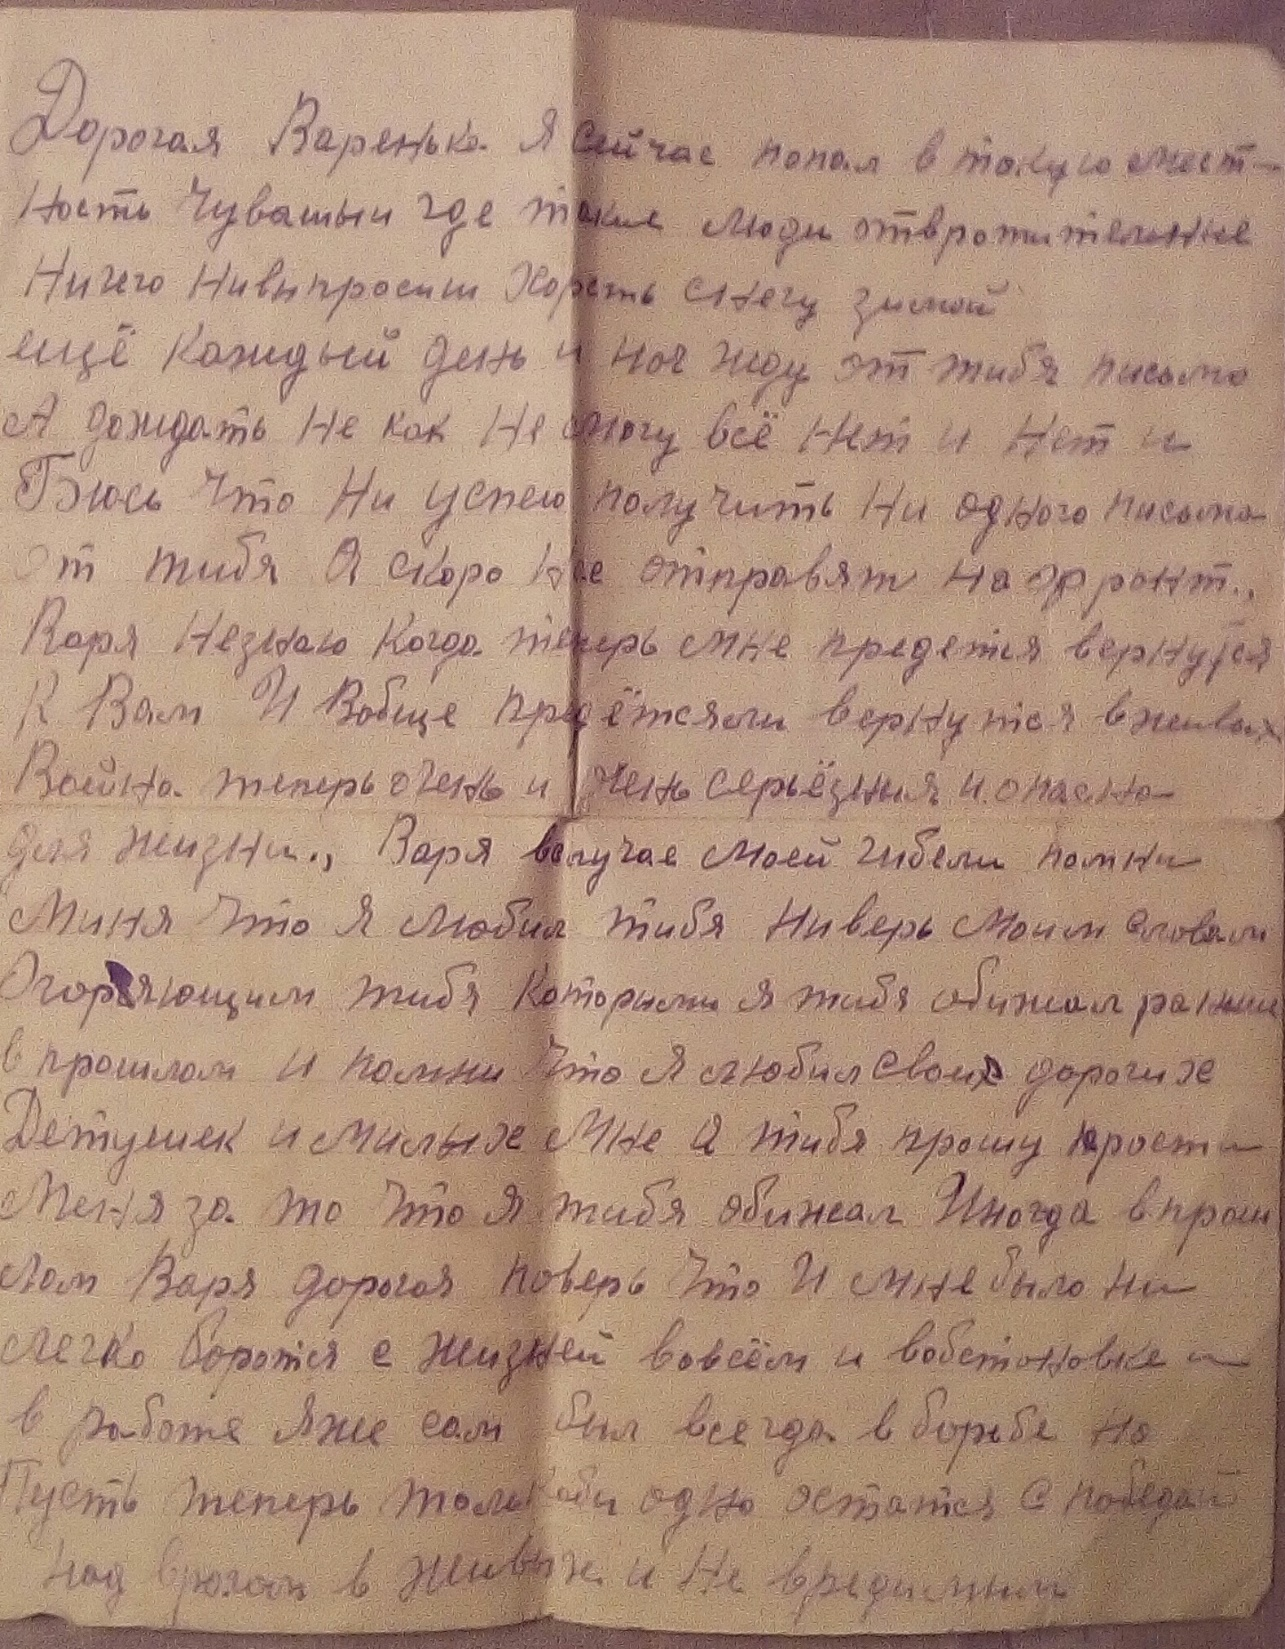 Дорогая Варенька Я сейчас попал в такую мест-
ность Чувашыи где такие люди отвротительные
Ничего Нивыпросиш Хоресть снегу зимой
ещё Каждый день и ноч жду от тибя письмо
А дождать Не как Не могу всё Нет и Нет и
Боюсь Что Ни успею получить Ни одного письма
От тибя А скоро Нас отправят На фронт.,
Варя Незнаю Когда теперь мне предется вернутся
К Вам И Вобще предётсяли вернутся вживых
Война теперь очень и очень серьёзния и опасна
для жизни., Варя вслучае Моей гибели помни
Миня Что я любил тибя Ниверь Моим словам
Огорчяющим тибя Которыми я тибя обижал раньше
в прошлом и помни Что Я любил своих дорогих
Детушек и Милых Мне А тибя прошу прости
Меня за то Что я тибя обижал Иногда впрош
лом Варя дорогая поверь Что И мне было ни
легко боротся с жизней вовсём и вобстановке и
в работе Яже сам был всегда в борьбе но
Пусть теперь только бы одно остатся с победой
над врагом в живых и Не вредимым